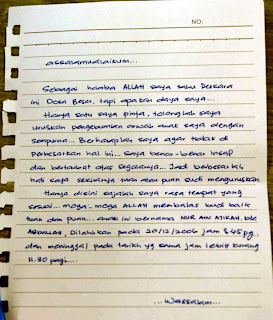 NO:
assalamualaikum...
Sebagai hamba ALLAH saya tahu perkara
ini Dosa Besar, tapi apakan daya saya...
Hanya satu saya pinta, tolonglah saya
uruskan pengebumian arwah anak saya dengan
sempurna... Berharaplah saya agar tidak di
perbesarkan hal ini... saya benar-benar insaf
dan bertaubat atas segalanya... Jadi berbesar lah
hati saya sekiranya tuan atau puan sudi menguruskan.
Hanya disini sajalah saya rasa tempat yang
sesuai... moga-moga ALLAH membalas budi baik
tuan dan puan... anak ini bernama NUR AIN ATIKAH. bte
ABDULLAH, Dilahirkan pada 20/12/2006 jam 3.45 pg,
dan meninggal pada tarikh yg sama jam lebih kurang
11.30 pagi...
...Wassalam...